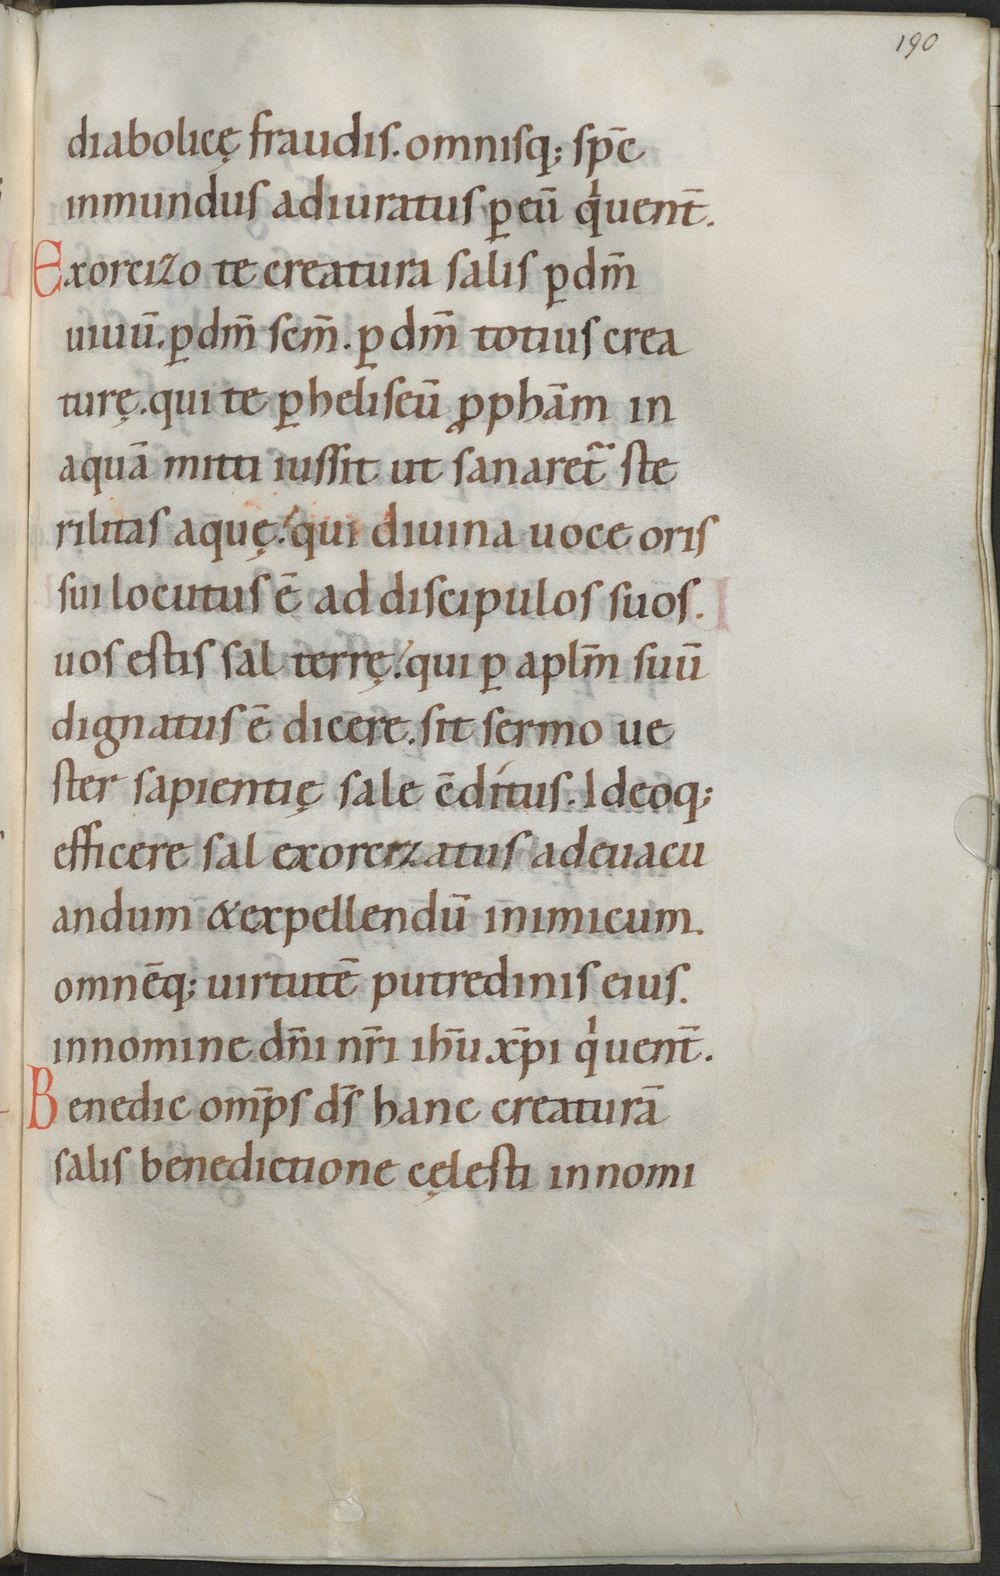 190
diabolicę fraudis. omnisq; sp̄c
inmundus adiuratus ꝑ eū qͥ uent̄.
Exorcizo te creatura salis ꝑ dm̄
uiuū. ꝑ dm̄ scm̄. ꝑ dm̄ totius crea
turę. qui te ꝑ heliseū ꝓphām in
aquā mitti iussit ut sanaret᷑ ste
rilitas aquę. qui diuina uoce oris
sui locutus ē ad discipulos suos.
uos estis sal terrę. qui ꝑ aplm̄ suū
dignatus ē dicere. sit sermo ue
ster sapientię sale cōditus. Ideoq;
efficere sal exorcizatus ad euacu
andum & expellendū inimicum.
omnēq; uirtutē putredinis eius.
in nomine dn̄i nr̄i ih̄u xp̄i qͥ uent̄.
Benedic omp̄s ds̄ hanc creaturā
salis benedictione cęlesti in nomi